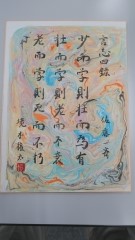 言志四録
佐藤一斎
少而学則壮而為有
壮而学則老而不衰
老而学則死而不朽